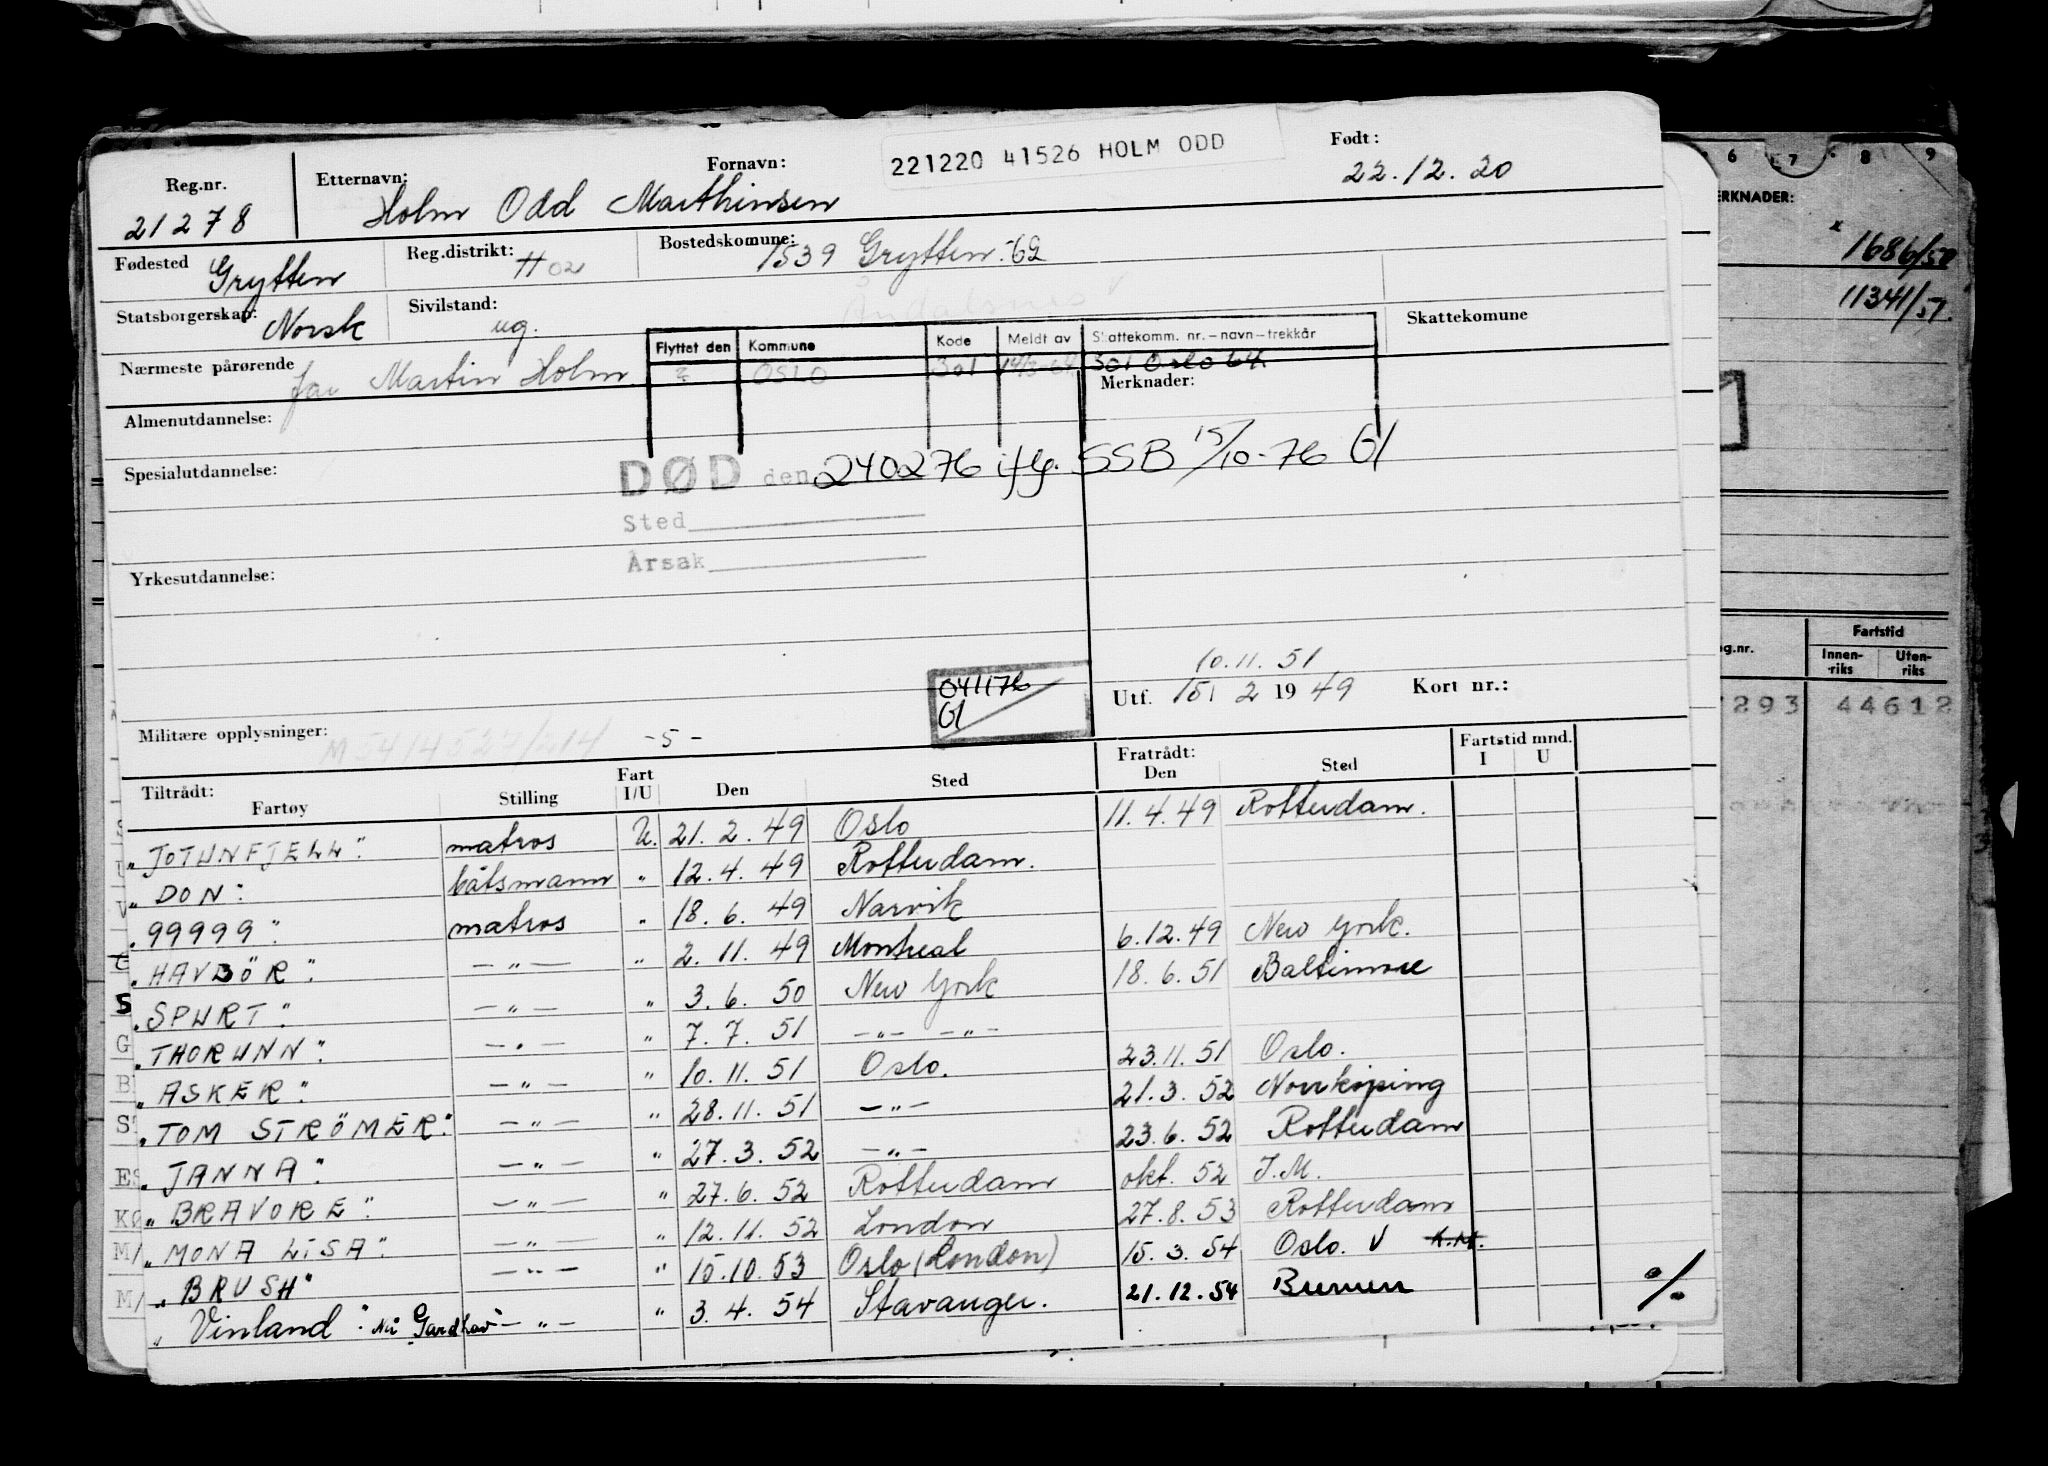 Reg.nr. Etternavn: Fornavn: 221220 41526 HOLM ODD Født:
21278 Holm Odd Marthinsen 22.12.20
Fødested Grytten Reg.distrikt: H02 Bostedskomune: 1539 Grytten -62
Åndalsnes
Statsborgerskap: Norsk Sivilstand: ug. Skattekomune
Flyttet den Kommune Kode Meldt av Skattekomm. nr. – navn – trekkår
Nærmeste pårørende far Martin Holm OSLO 301 301 Oslo 64
Merknader:
Almenutdannelse:
Spesialutdannelse: DØD den 240276 iflg. SSB 15/10-76 Gl
Sted
Årsak
Yrkesutdannelse:
10.11.51
041176
Gl
Utf. 15. 2 1949 Kort nr.:
Militære opplysninger: -5-
Tiltrådt: Fart Fratrådt: Fartstid mnd.
Fartøy Stilling I/U Den Sted Den Sted I U
"JOTUNFJELL" matros U. 21.2.49 Oslo 11.4.49 Rotterdam.
"DON" båtsmann " 12.4.49 Rotterdam.
"99999" matros " 18.6.49 Narvik
"HAVBÖR" – " – " 2.11.49 Montreal 6.12.49 New York.
"SPURT" – " – " 3.6.50 New York 18.6.51 Baltimore
"THORUNN" – " – " 7.7.51 – " – – " –
"ASKER" – " – " 10.11.51 Oslo. 23.11.51 Oslo.
"TOM STRÖMER" – " – " 28.11.51 – " – 21.3.52 Norrköping
"JANNA" – " – " 27.3.52 – " – 23.6.52 Rotterdam
"BRAVORE" – " – " 27.6.52 Rotterdam okt. 52 I.M.
"MONA LISA" – " – " 12.11.52 London 27.8.53 Rotterdam
"BRUSH" – " – " 15.10.53 Oslo (London) 15.3.54 Oslo. V
"Vinland" Nü Gardhav – " – " 3.4.54 Stavanger. 21.12.54 Bremen %
6 7 8 9
ERKNADER:
1686/51
11341/51.
Fartstid
Innen-riks Uten-riks
293 44612